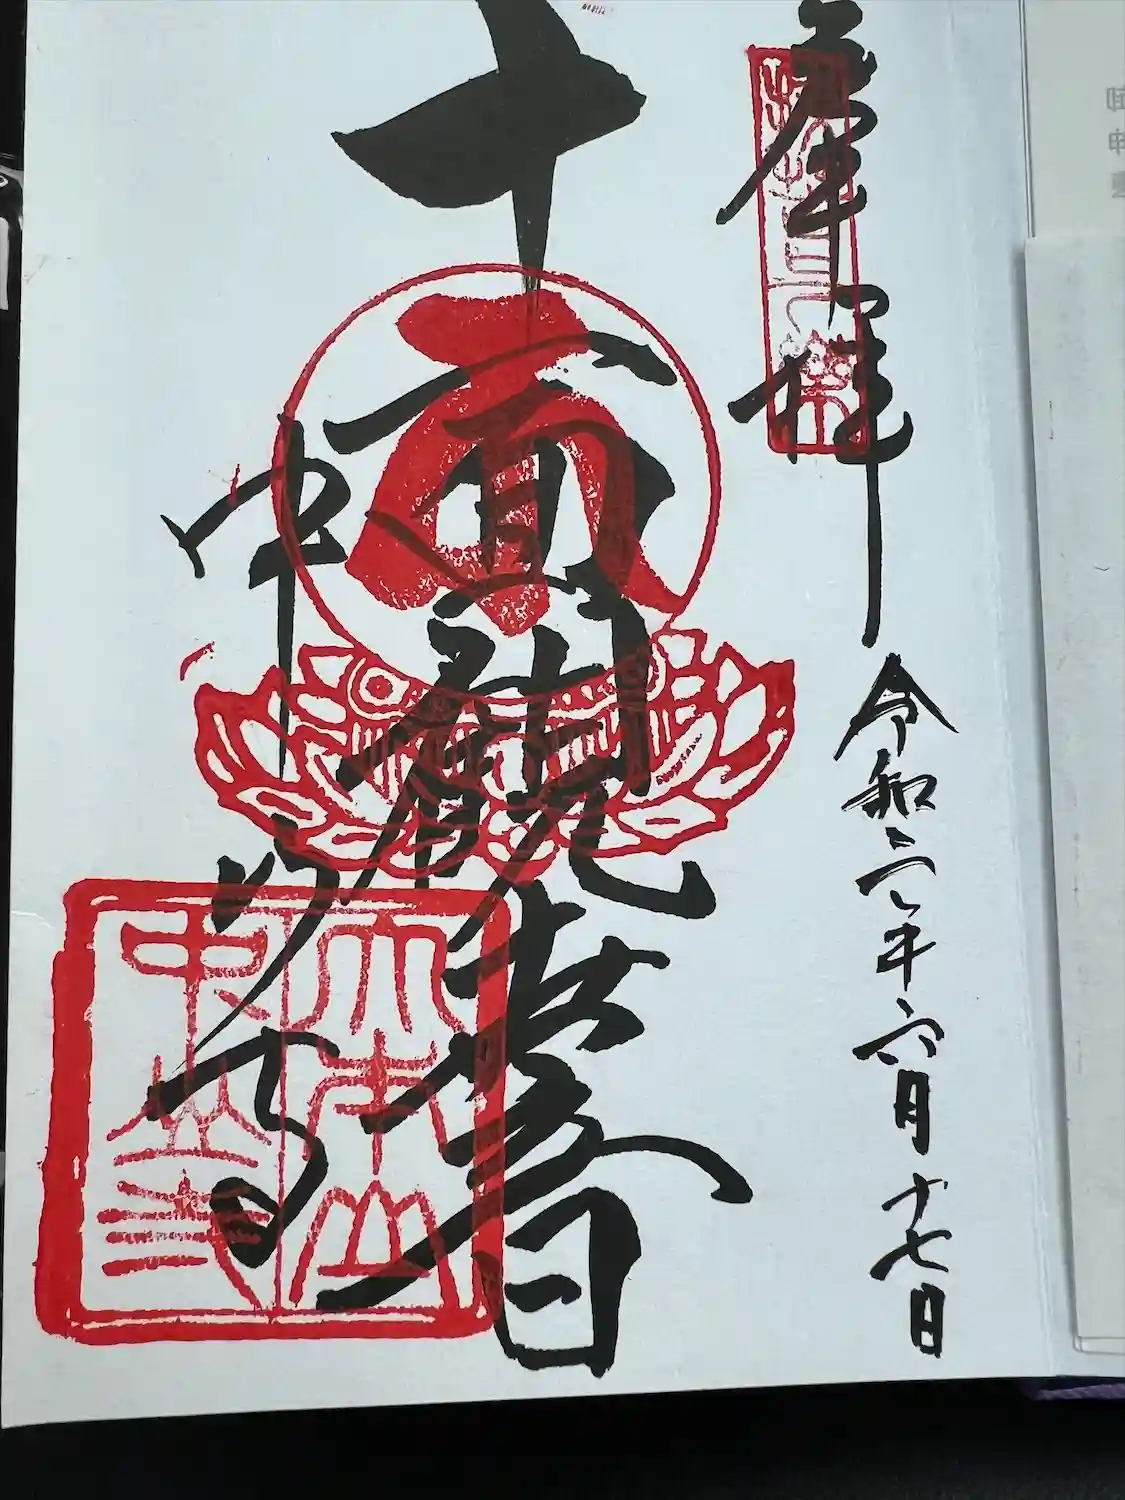 奉拝
令和三年六月十七日
十一面観世音
中山寺
大本山
中山寺